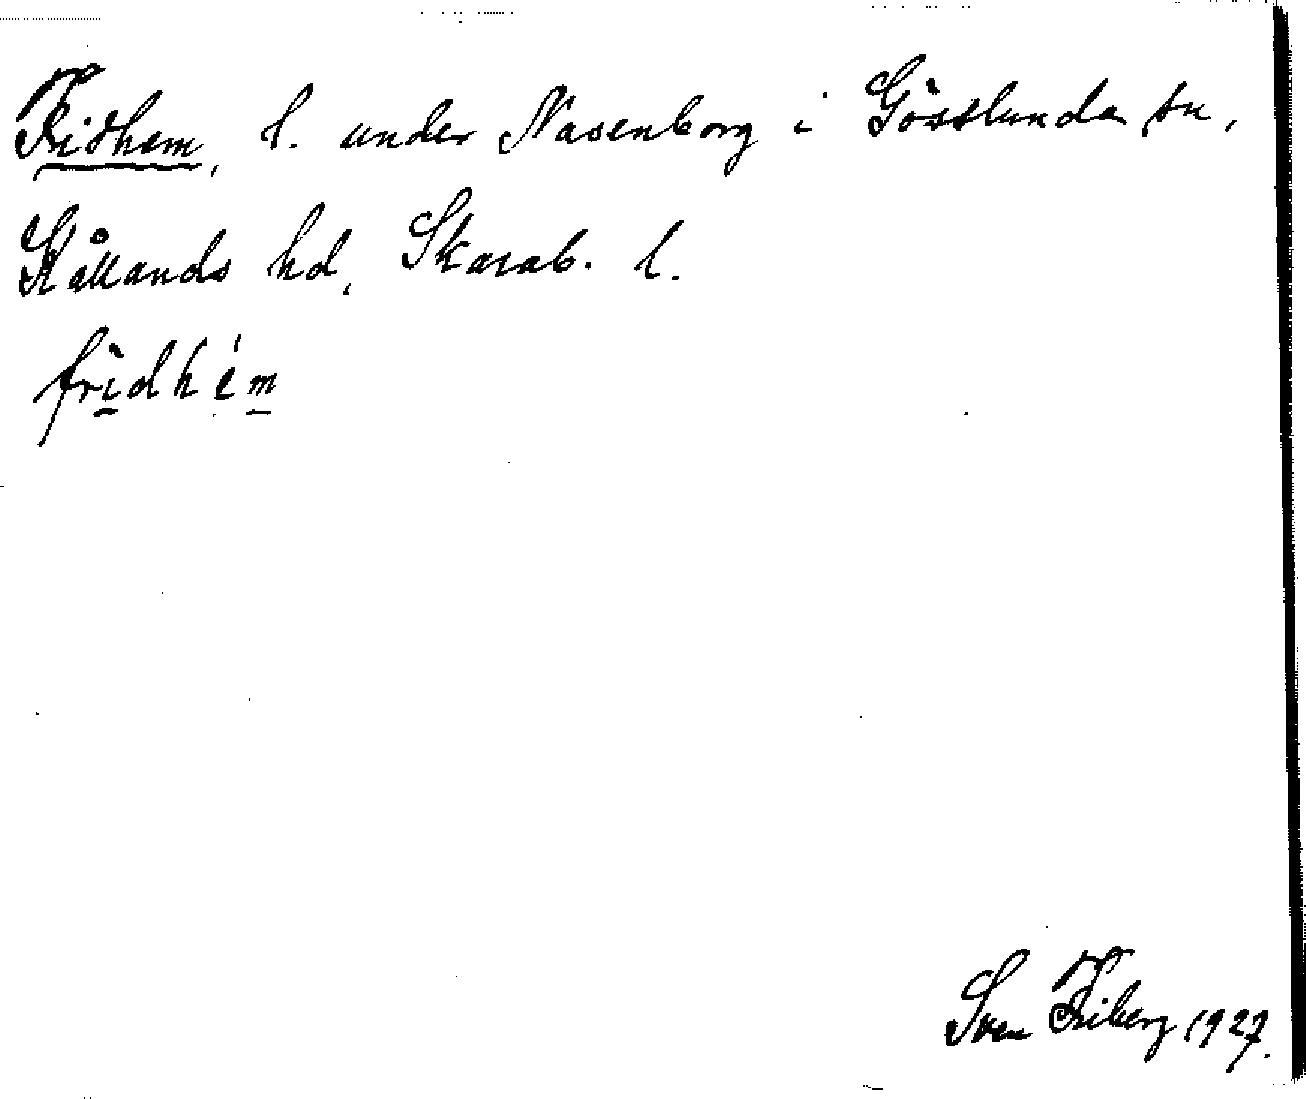 Fridhem, l. under Nasenborg i Gösslunda sn,
Kållands hd, Skarab. l.
fridhem
Sven Friberg 1927.